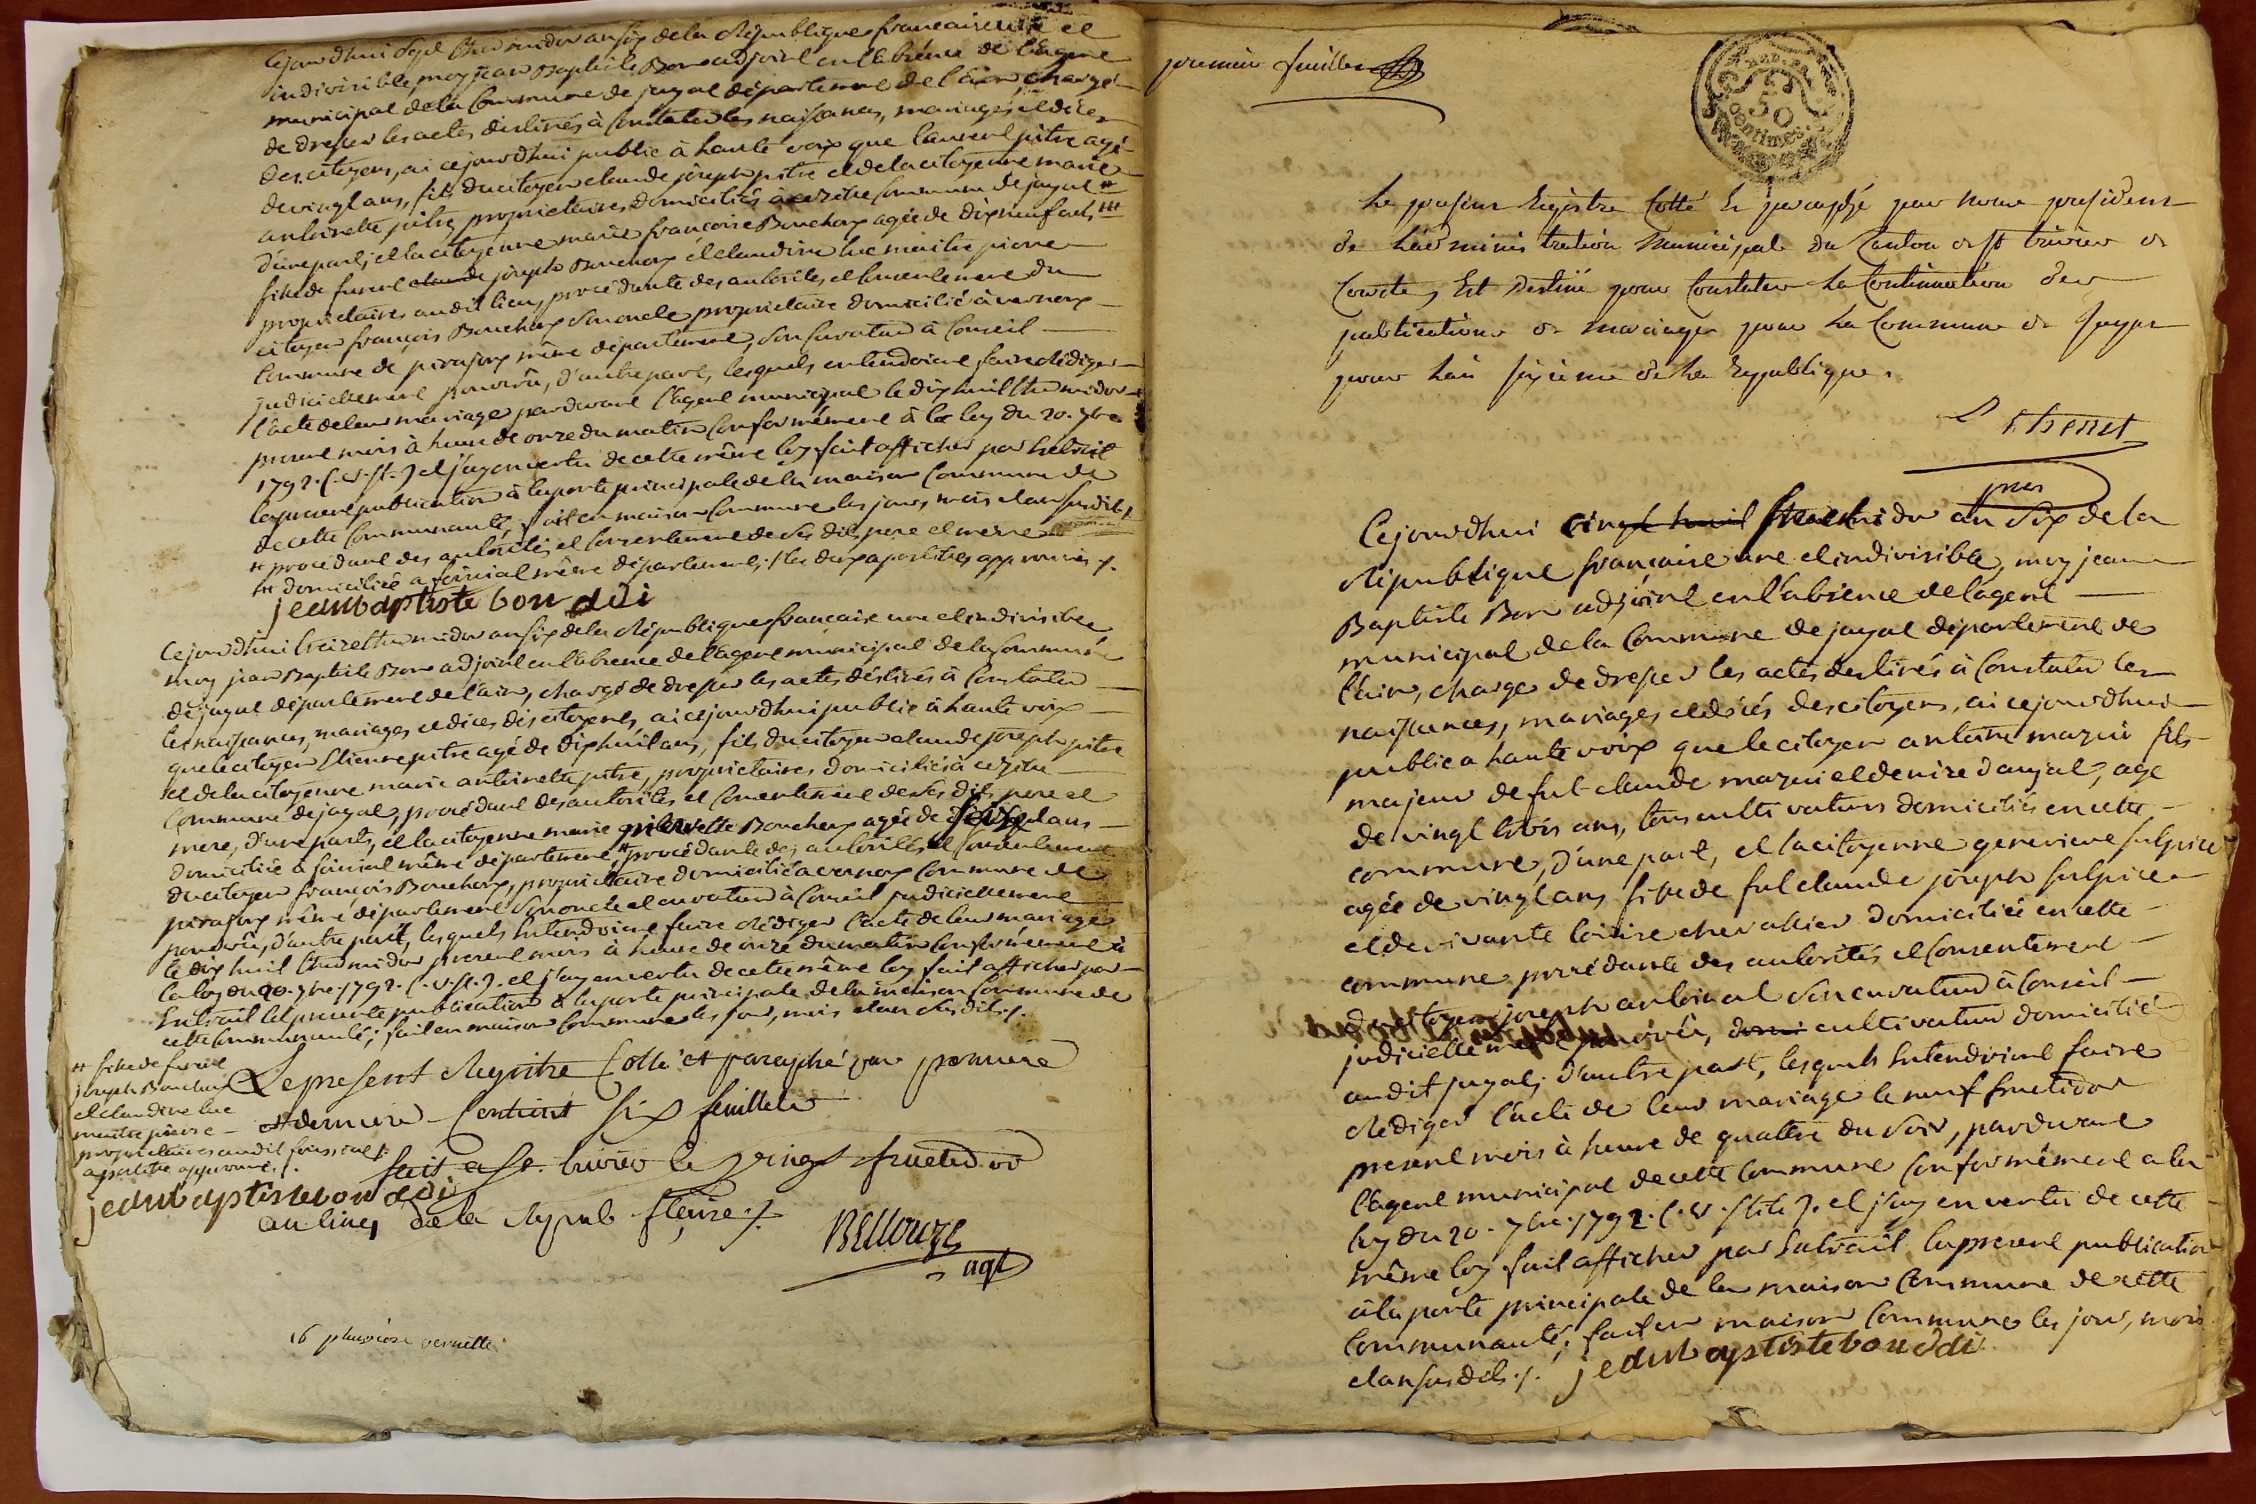 Cejourdhui Sept thermidor an six de la République francaise une et
indivisible, moy jean Baptiste Bon adjoint en l'absence de l'agent
municipal de la Commune de jayat département de l'ain, chargé
de dresser les actes destinés à Constater les naissances, mariages et décès
des citoyens, ai cejourdhui publié à haute voix que laurent pitre agé
de vingt ans, fils du citoyen claude joseph pitre et de la citoyenne marie
antoinette pitre, propriétaires domiciliés à cezitre Commune de jayat #
d'une part, et la citoyenne marie francoise Bouchoux agée de dix neuf ans ##
fille de furent claude joseph Bouchoux et claudine luc maitre pierre
propriétaires audit lieu, procédante des autorités et Consentement du
citoyen françois Bouchoux Son oncle propriétaire domicilié à vernoux
Commune de pirajoux même département, Son Curateur à Conseil
judiciellement pourvu, d'autre part, lesquels entendoient faire Rédiger
l'acte de leur mariage pardevant l'agent municipal le dix huit thermidor
present mois à heure de onze du matin Conformément à la loy du 20. 7bre
1792. (. v. st. ) et j'ay en vertu de cette même loy fait afficher par Extrait
la presente publication à la porte principale de la maison Commune de
de cette Communauté; fait en maison Commune les jour, mois et an susdits
# procédant des autorités et Consentement de ses dits pere et mere
## domiciliée a foissiat même département; / les deux apostilles approuvées /.
jean baptiste bon adi
Cejourdhui treize thermidor an six de la République francaise une et indivisible
moy jean Baptiste Bon adjoint en l'absence de l'agent municipal de la Commune
de jayat département de l'ain, chargé de dresser les actes destinés à Constater
les naissances, mariages et décès des citoyens, ai cejourdhui publié à haute voix
que le citoyen Etienne pitre agé de dix huit ans, fils du citoyen claude joseph pitre
et de la citoyenne marie antoinette pitre, propriétaires domiciliés à cezitre
Commune de jayat, procédant des autorités et Consentement de ses dits pere et
mere, d'une part, et la citoyenne marie Bouchoux agée de seize ans
domiciliée à foissiat même département, # procédante des autorités et Consentement
du citoyen françois Bouchoux, propriétaire domicilié a vernoux Commune de
pirajoux même département Son oncle et curateur à Conseil judiciellement
pourvu, d'autre part, lesquels Entendoient faire Rédiger l'acte de leur mariage
le dix huit thermidor present mois à heure de onze du matin Conformément à
la loy du 20. 7bre. 1792. (. v. st. ). et j'ay en vertu de cette même loy fait afficher par
Extrait la presente publication à la porte principale de la maison Commune de
cette Communauté; fait en maison Commune les jour, mois et an susdits /.
# fille de furent
joseph Bouchoux
et claudine luc
maitre pierre
propriétaires audit foissiat /.
apostille approuvée /.
jean baptiste bon adi
Le present Registre Cotté et paraphé par premiere
et derniere Contient six feuillets
fait a St. trivier le vingt fructidor
an cinq de la Repub. fçaise /.
BEllouze
agt
16 pluviose vernette
premier feuillet
REP. FRA.
50
centimes
Le present Registre Cotté Et paraphé par nous president
de L'administration Municipale du Canton de St trivier de
Courtes, Est Destiné pour Constater La Continuation des
publications de mariages pour La Commune de Jayat
pour L'an sixieme de la Republique.
pres
Cejourdhui vingt huit thermidor an Six de la
République française une et indivisible, moy jean
Baptiste Bon adjoint en l'absence de l'agent
municipal de la Commune de jayat département de
l'ain, chargé de dresser les actes destinés à Constater les
naissances, mariages et décès des citoyens, ai cejourdhui
publié a haute voix que le citoyen antoine mazui fils
majeur de fut claude mazui et denize dangat, agé
de vingt trois ans, tous cultivateurs domiciliés en cette
commune, d'une part, et la citoyenne genevieve sulpice
agée de vingt ans fille de fut claude joseph sulpice
et de vivante loüise chevallier domiciliée en cette
commune procédante des autorités et Consentement
du citoyen joseph antoinat Son curateur à Conseil
judiciellement pourvu, domi cultivateur domicilié
audit jayat, d'autre part, lesquels Entendoient faire
Rédiger l'acte de leur mariage le neuf fructidor
present mois à heure de quattre du Soir, pardevant
l'agent municipal de cette Commune Conformément a la
loy du 20. 7bre. 1792. (. v. stile ). et j'ay en vertu de cette
même loy fait afficher par Extrait la presente publication
à la porte principale de la maison Commune de cette
Communauté; fait en maison Commune les jour, mois
et an susdits /. jean baptiste bon adi